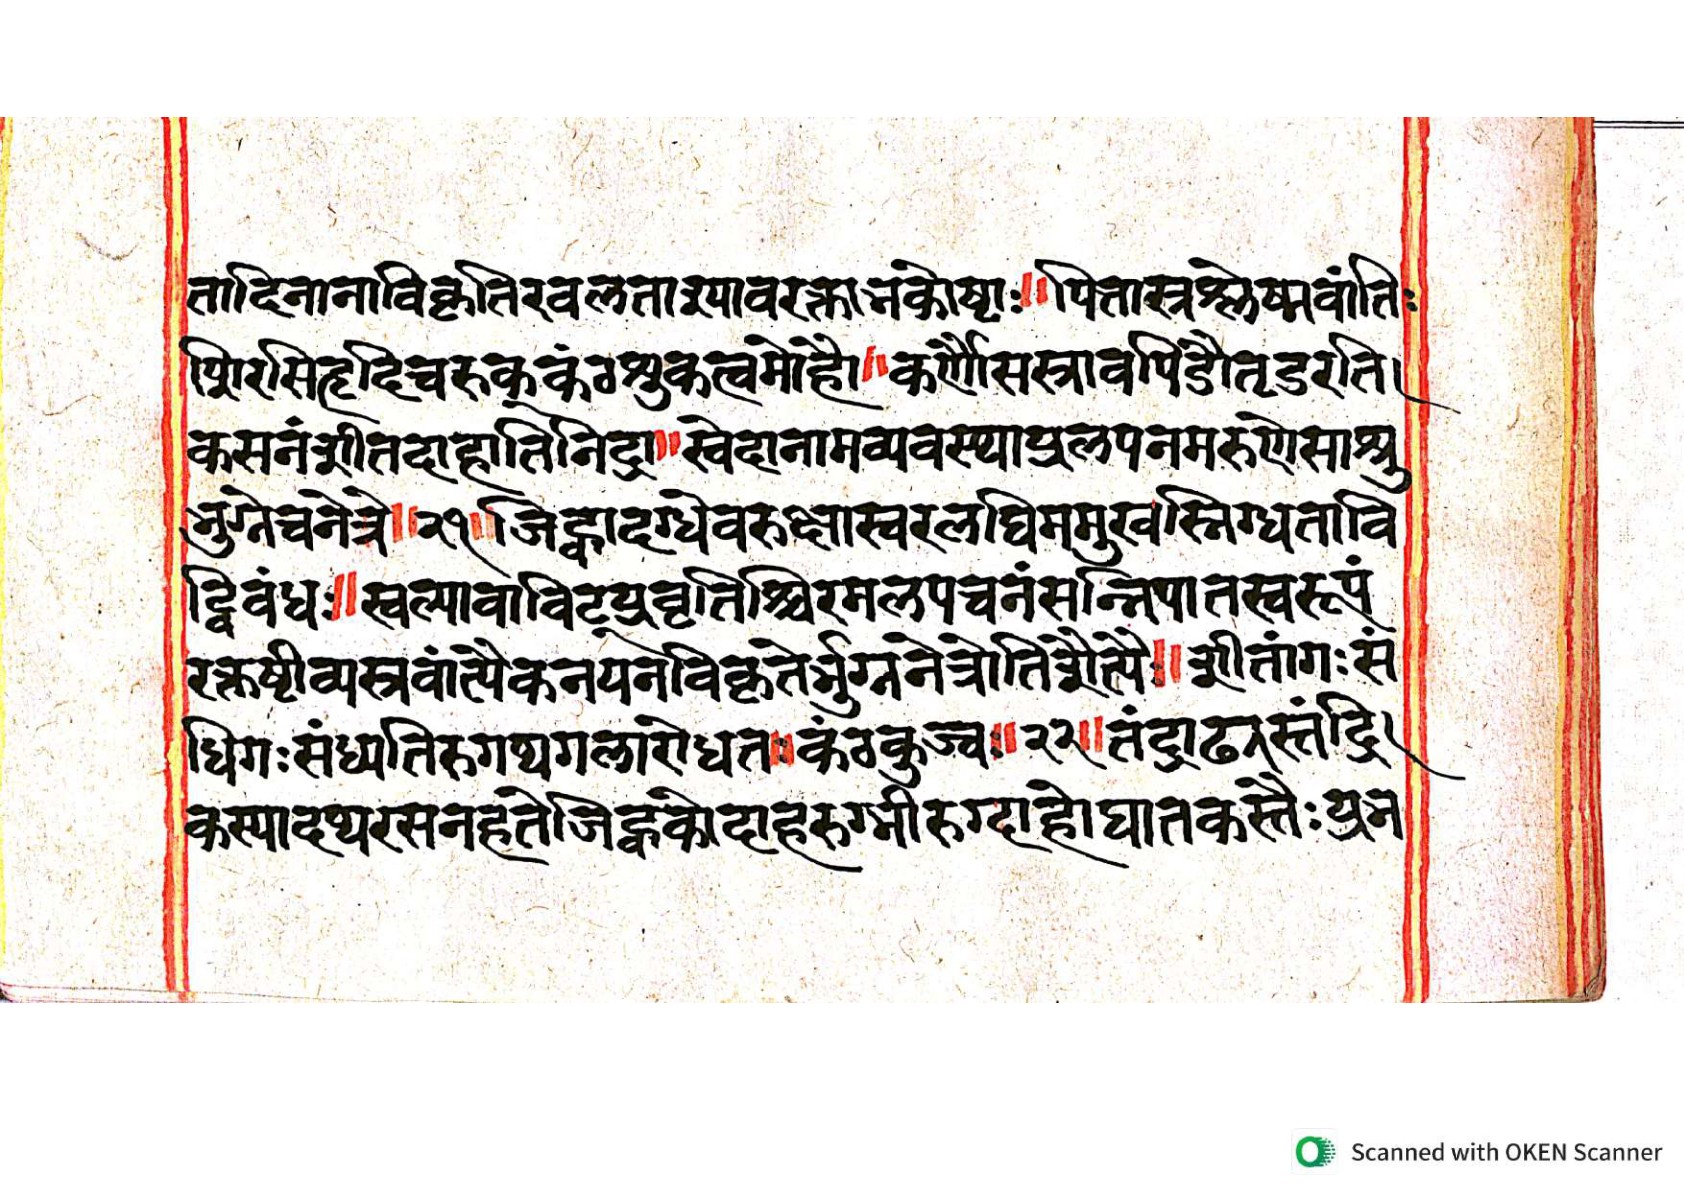 तादिनानाविकृतिरवलताश्यावरक्तांगकोष्टाः॥पित्तास्रश्लेष्मवांतिः
शिरसिहृदिचरुक्कंठश्रुकत्वमोहौ॥कर्णौसस्त्रावपिंडौतृडरति।
कसनंशीतदाहातिनिद्रा॥स्वेदानामव्यवस्थाप्रलपनमरुणेसाश्रु
भुग्नेचनेत्रे॥२१॥जिह्वादग्धेवरुक्षास्वरलघिमसुखस्निग्धतावि
द्विबंधः॥स्वल्पावाविट्प्रवृतिश्चिरमलपचनंसन्निपातस्वरूपं
रक्तष्टीव्यस्रवांत्यैकनयनविकृतेर्भुग्ननेत्रोतिशैत्यैः॥शीतांगःसं
धिगःसंध्यतिरुगथगलारोधतःकंठकुब्जः॥२२॥तंद्राढ्यस्तंद्रि।
कस्यादथरसनहतेजिह्वकोदाहरुग्भीरुग्दाहोघातकस्तैःप्रल
Scanned with OKEN Scanner